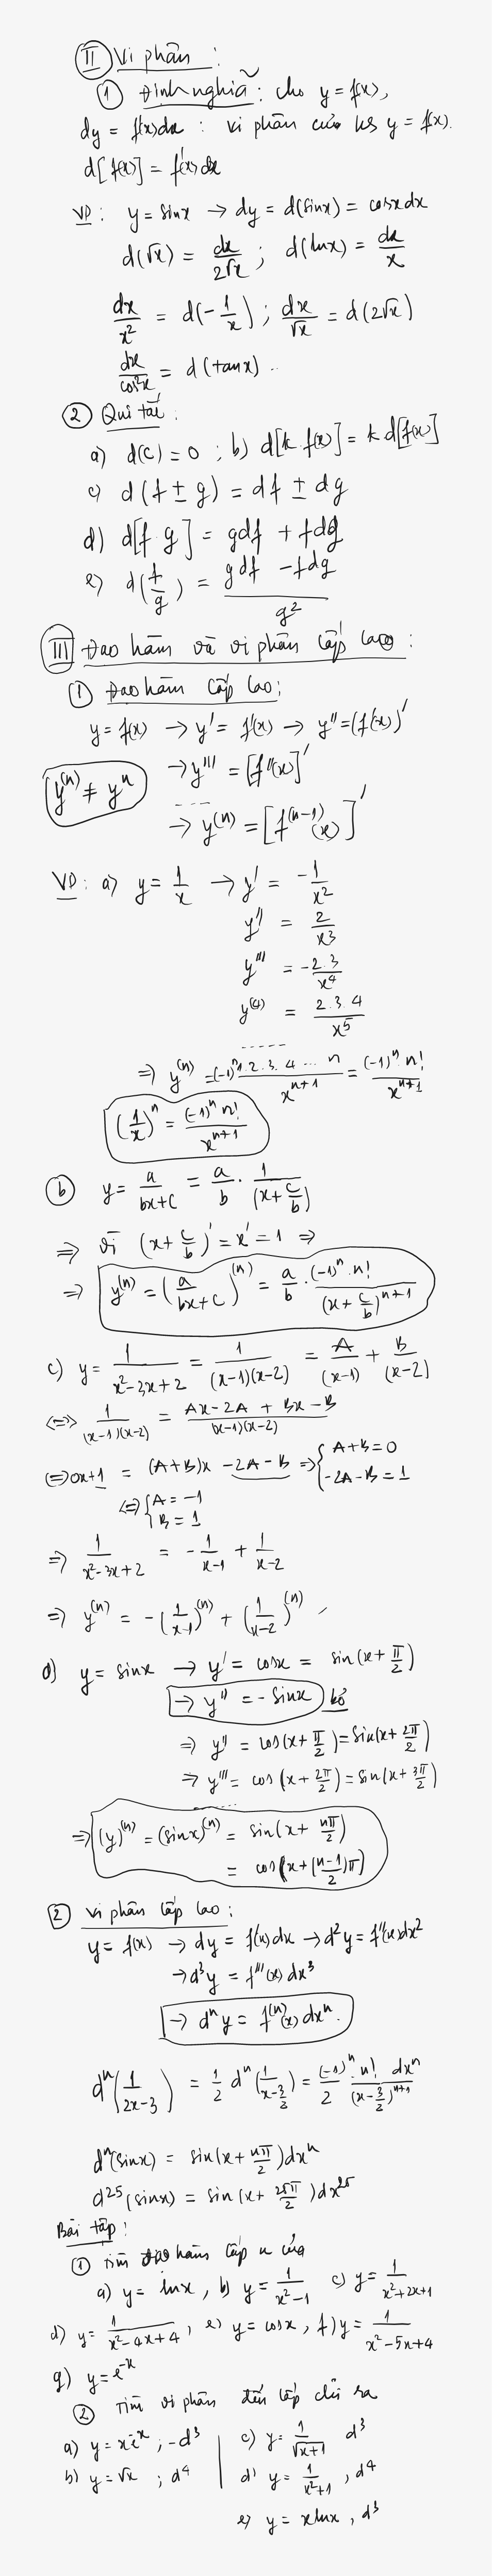 II Vi phân :
1 Định nghĩa : cho y = f(x),
dy = f(x)dx : vi phân của hs y = f(x).
d[f(x)] = f'(x)dx
VD : y = sinx → dy = d(sinx) = cosxdx
d(√x) = dx/2√x ; d(lnx) = dx/x
dx/x² = d(-1/x) ; dx/√x = d(2√x)
dx/cos²x = d(tanx) ..
2 Qui tắc :
a) d(c) = 0 ; b) d[k.f(x)] = k d[f(x)]
c) d(f ± g) = df ± dg
d) d[f g] = gdf + fdg
e) d(f/g) = (gdf - fdg)/g²
III Đạo hàm và vi phân cấp cao :
1 Đạo hàm cấp cao ;
y = f(x) → y' = f'(x) → y'' = (f'(x))'
y⁽ⁿ⁾ ≠ yⁿ → y''' = [f''(x)]'
→ y⁽ⁿ⁾ = [f⁽ⁿ⁻¹⁾(x)]'
VD : a) y = 1/x → y' = -1/x²
y'' = 2/x³
y''' = -2.3/x⁴
y⁽⁴⁾ = 2.3.4/x⁵
⇒ y⁽ⁿ⁾ = (-1)ⁿ1.2.3.4...n/xⁿ⁺¹ = (-1)ⁿ.n!/xⁿ⁺¹
(1/x)ⁿ = (-1)ⁿn!/xⁿ⁺¹
b y = a/(bx+c) = a/b . 1/(x+c/b)
⇒ vì (x+c/b)' = x' = 1 ⇒
⇒ y⁽ⁿ⁾ = (a/(bx+c))⁽ⁿ⁾ = a/b . (-1)ⁿ.n!/(x+c/b)ⁿ⁺¹
c) y = 1/(x²-3x+2) = 1/((x-1)(x-2)) = A/(x-1) + B/(x-2)
⇔ 1/((x-1)(x-2)) = (Ax-2A + Bx-B)/((x-1)(x-2))
⇔ 0x+1 = (A+B)x - 2A - B ⇒ { A+B=0 ; -2A-B=1
⇔ { A = -1 ; B = 1
⇒ 1/(x²-3x+2) = -1/(x-1) + 1/(x-2)
⇒ y⁽ⁿ⁾ = -(1/(x-1))⁽ⁿ⁾ + (1/(x-2))⁽ⁿ⁾
d) y = sinx → y' = cosx = sin(x+π/2)
→ y'' = - sinx bỏ
⇒ y'' = cos(x+π/2) = sin(x+2π/2)
⇒ y''' = cos(x+2π/2) = sin(x+3π/2)
⇒ (y)⁽ⁿ⁾ = (sinx)⁽ⁿ⁾ = sin(x+nπ/2)
= cos(x+(n-1)/2 π)
2 Vi phân cấp cao :
y = f(x) → dy = f'(x)dx → d²y = f''(x)dx²
→ d³y = f'''(x)dx³
→ dⁿy = f⁽ⁿ⁾(x)dxⁿ.
dⁿ(1/(2x-3)) = 1/2 dⁿ(1/(x-3/2)) = (-1)ⁿ/2 . n! dxⁿ/(x-3/2)ⁿ⁺¹
dⁿ(sinx) = sin(x+nπ/2)dxⁿ
d²⁵(sinx) = sin(x+25π/2)dx²⁵
Bài tập :
1 Tìm đạo hàm cấp n của
a) y = lnx , b) y = 1/(x²-1) c) y = 1/(x²+2x+1)
d) y = 1/(x²-4x+4) , e) y = cosx , f) y = 1/(x²-5x+4)
g) y = e⁻ˣ
2 Tìm vi phân đến cấp chỉ ra
a) y = xe⁻ˣ ; -d³ c) y = 1/√(x+1) d³
b) y = √x ; d⁴ d) y = 1/(x²+1) , d⁴
e) y = xlnx , d³